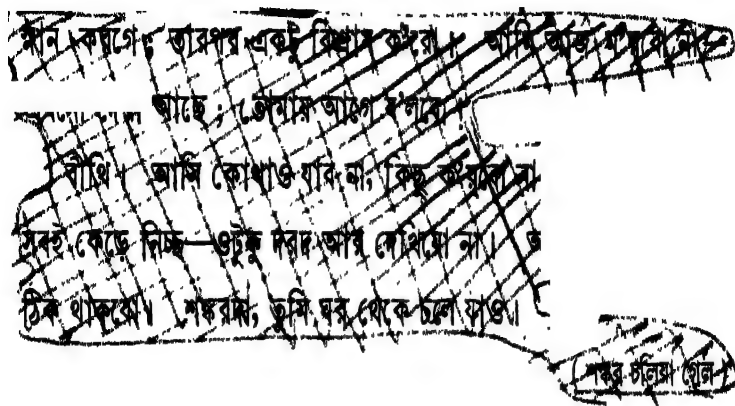 স্নান করগে; তারপর একটু বিশ্রাম ক'রো। আমি আজ ম'রবো না।
আছে; তোমায় আগে ব'লবো।
বীথি। আমি কোথাও যাব না, কিছু ক'রবো না
সবই কেড়ে নিচ্ছ—ওটুকু দরদ আর দেখিয়ো না।
ঠিক থাকবো। শঙ্করদা, তুমি ঘর থেকে চলে যাও।
(শঙ্কর চলিয়া গেল)